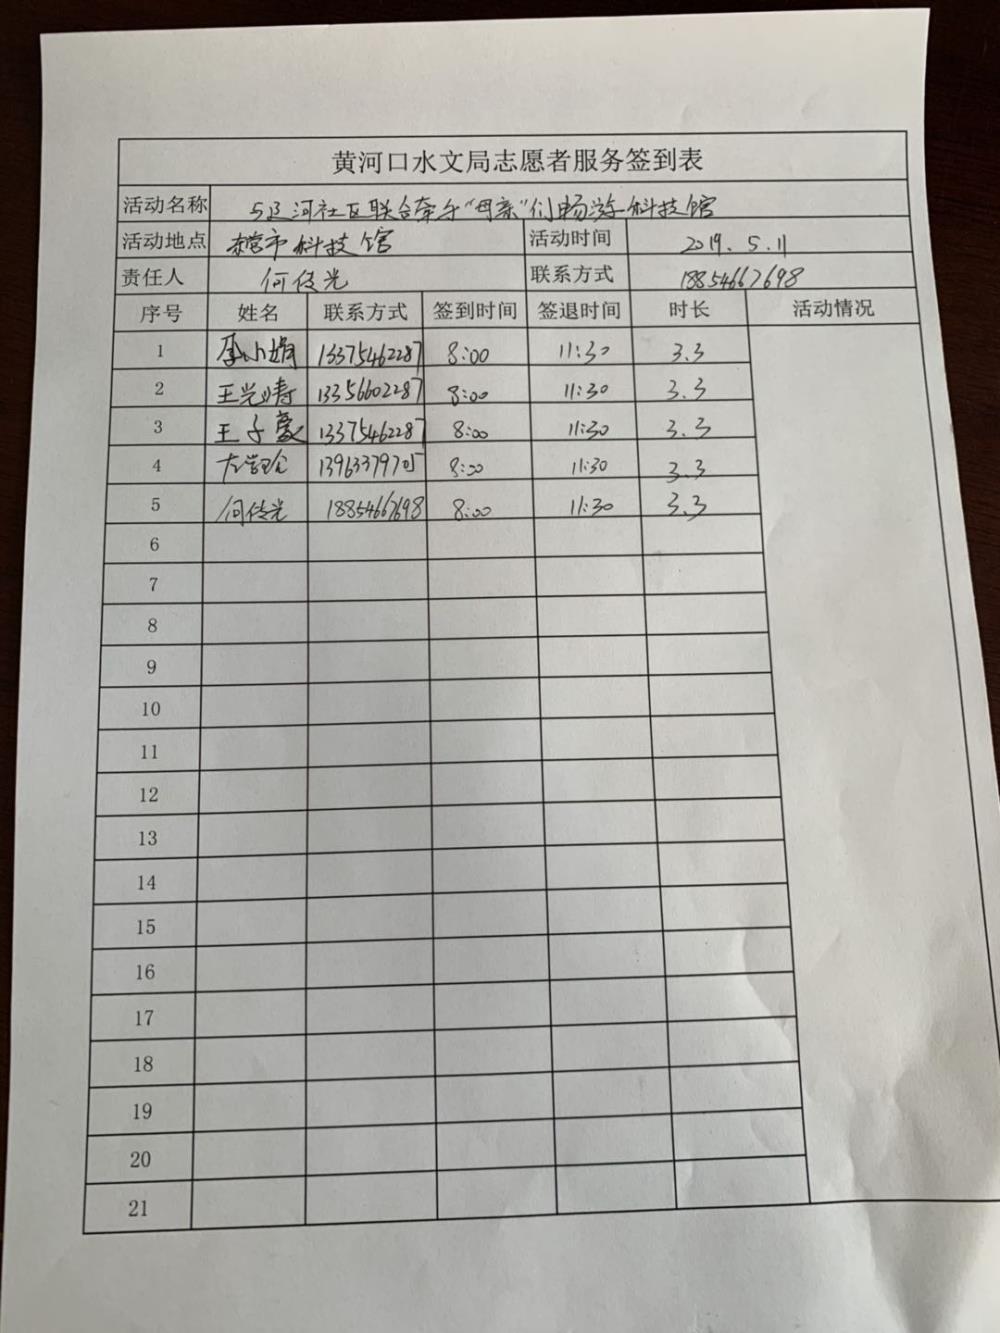 黄河口水文局志愿者服务签到表
活动名称 与辽河社区联合牵手"母亲"们畅游科技馆
活动地点 东营市科技馆 活动时间 2019.5.11
责任人 何传光 联系方式 18854667698
序号 姓名 联系方式 签到时间 签退时间 时长 活动情况
1 李小娟 13375462287 8:00 11:30 3.3
2 王光涛 13356602287 8:00 11:30 3.3
3 王子豪 13375462287 8:00 11:30 3.3
4 13963379705 8:00 11:30 3.3
5 何传光 18854667698 8:00 11:30 3.3
6
7
8
9
10
11
12
13
14
15
16
17
18
19
20
21